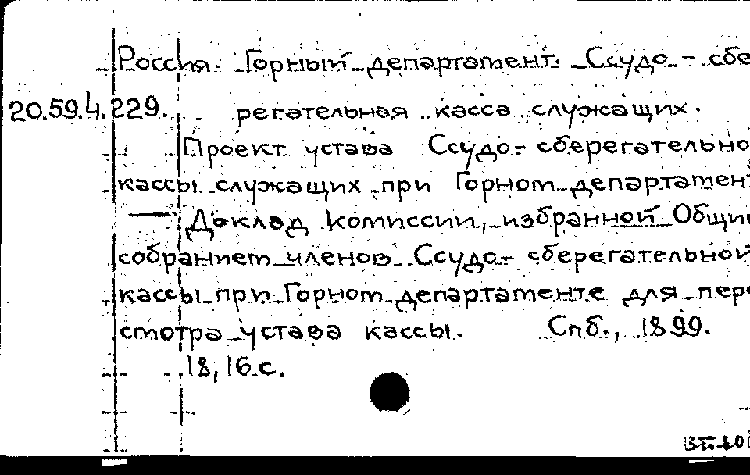 Россия. Горный департамент. Ссудо-сбе
20.59.4.229. регательная касса служащих.
Проект устава Ссудо-сберегательно
кассы служащих при Горном департамен
— Доклад комиссии, избранной Общи
собранием членов Ссудо-сберегательной
кассы при Горном департаменте для пер
смотра устава кассы. Спб., 1899.
18, 16 с.